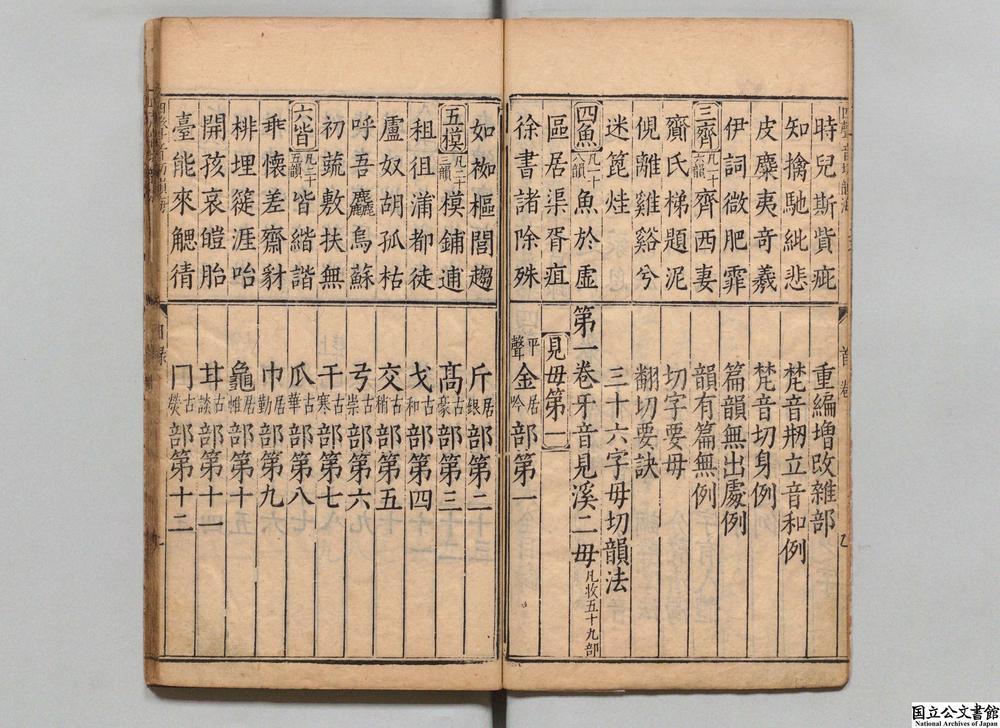 時兒斯貲疵
知摛馳紕悲
皮麋夷奇羲
伊詞微肥霏
三齊凡一十六韻齊西妻
齎氐梯題泥
倪離雞谿兮
迷篦烓
四魚凡一十八韻魚於虛
區居渠胥疽
徐書諸除殊
首卷
重編增改雜部
梵音剏立音和例
梵音切身例
篇韻無出處例
韻有篇無例
切字要毋
翻切要訣
三十六字毋切韻法
第一卷牙音見溪二毋凡收五十九部
見毋第一
平聲金居吟部第一
如樞閭趨
五模凡二十三韻模鋪逋
租徂蒲都徒
盧奴胡孤枯
呼吾麤烏蘇
初蔬敷扶無
六皆凡二十五韻皆諧
乖懷差齋豺
排埋簁涯咍
開孩哀皚胎
臺能來䚡猜
目錄
斤居銀部第二
高古豪部第三
戈古和部第四
交古稍部第五
弓居崇部第六
干古寒部第七
瓜古華部第八
巾居勤部第九
龜居帷部第十
甘古談部第十一
冂古熒部第十二
国立公文書館
National Archives of Japan